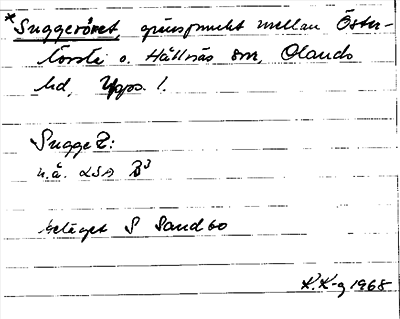 *Suggeröret, gränspunkt mellan Öster-
lövsta o. Hållnäs snr, Olands
hd, Upps. l.
Sugge R:
u.å. LSA B3
beläget S Sandbo
K. K-g 1968